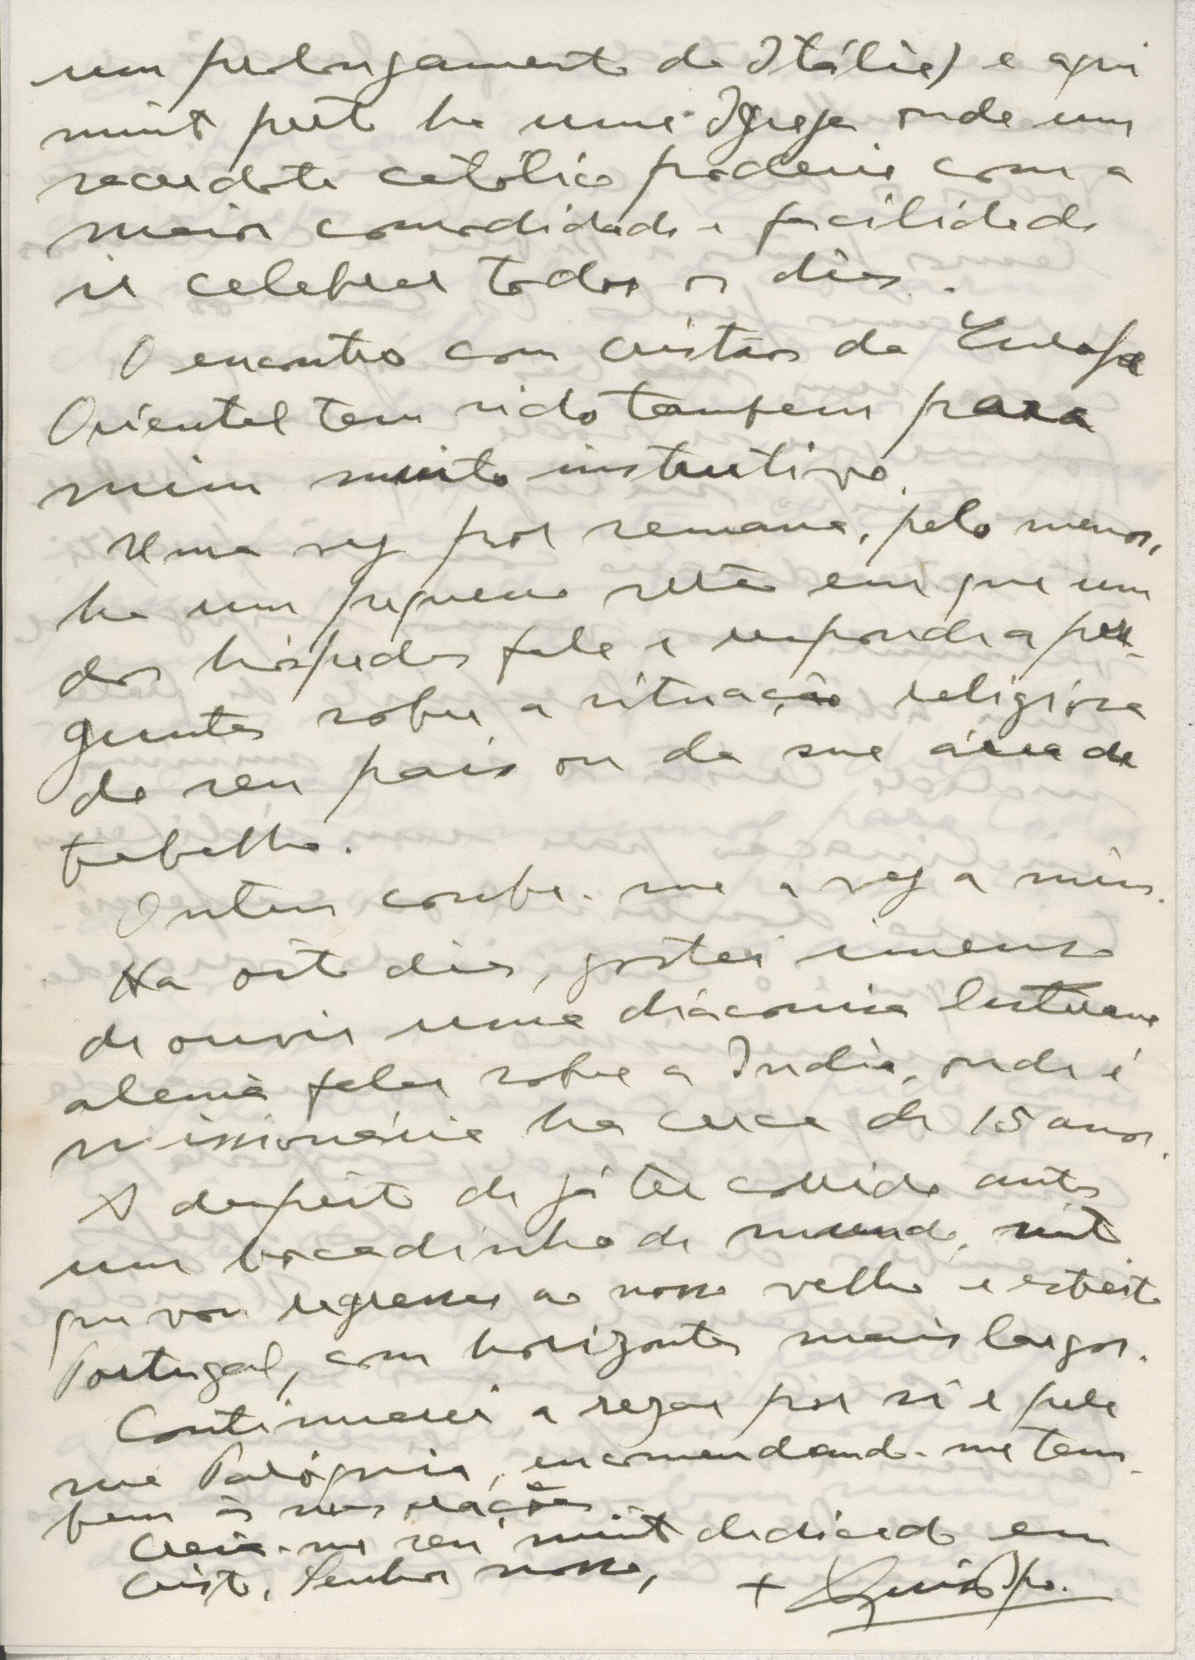 um prolongamento da Itália) e aqui
muito perto ha uma Igreja onde um
sacerdote católico poderia com a
maior comodidade e facilidade
ir celebrar todos os dias.
O encontro com cristãos da Europa
Oriental tem sido tambem para
mim muito instrutivo.
Uma vez por semana, pelo menos,
ha um pequeno serão em que um
dos hóspedes fala e responde a per-
guntas sobre a situação religiosa
do seu pais ou da sua área de
trabalho.
Ontem coube-me a vez a mim.
Ha oito dias, gostei imenso
de ouvir uma diáconisa luterana
alemã falar sobre a India, onde é
missionária ha cerca de 15 anos.
A despeito de já ter corrido antes
um bocadinho de mundo, sinto
que vou regressar ao nosso velho e estreito
Portugal, com horizontes mais largos.
Continuarei a rezar por si e pela
sua Paróquia, encomendando-me tam-
bem às suas orações.
Creia-me seu muito dedicado em
Cristo, Senhor nosso,
+ Luis